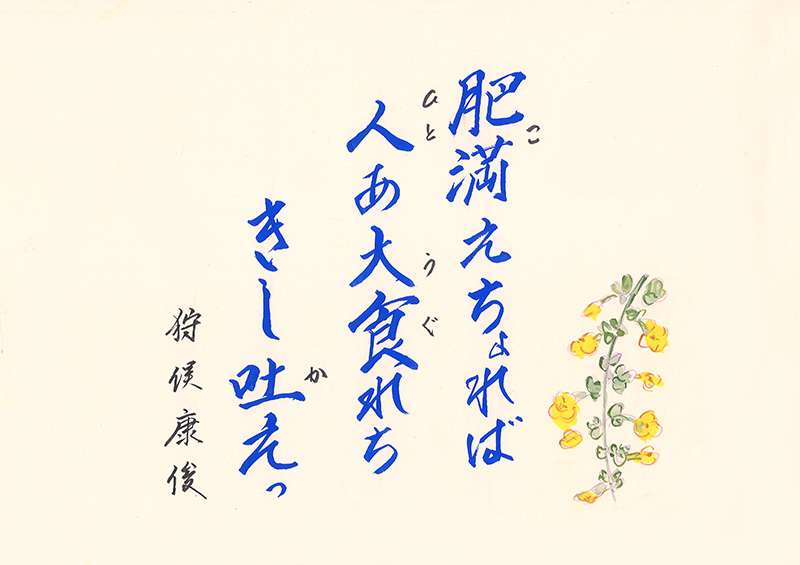 肥満えちょれば
人あ大食れち
きし吐えっ
狩俣康俊
こ
ひと
うぐ
か